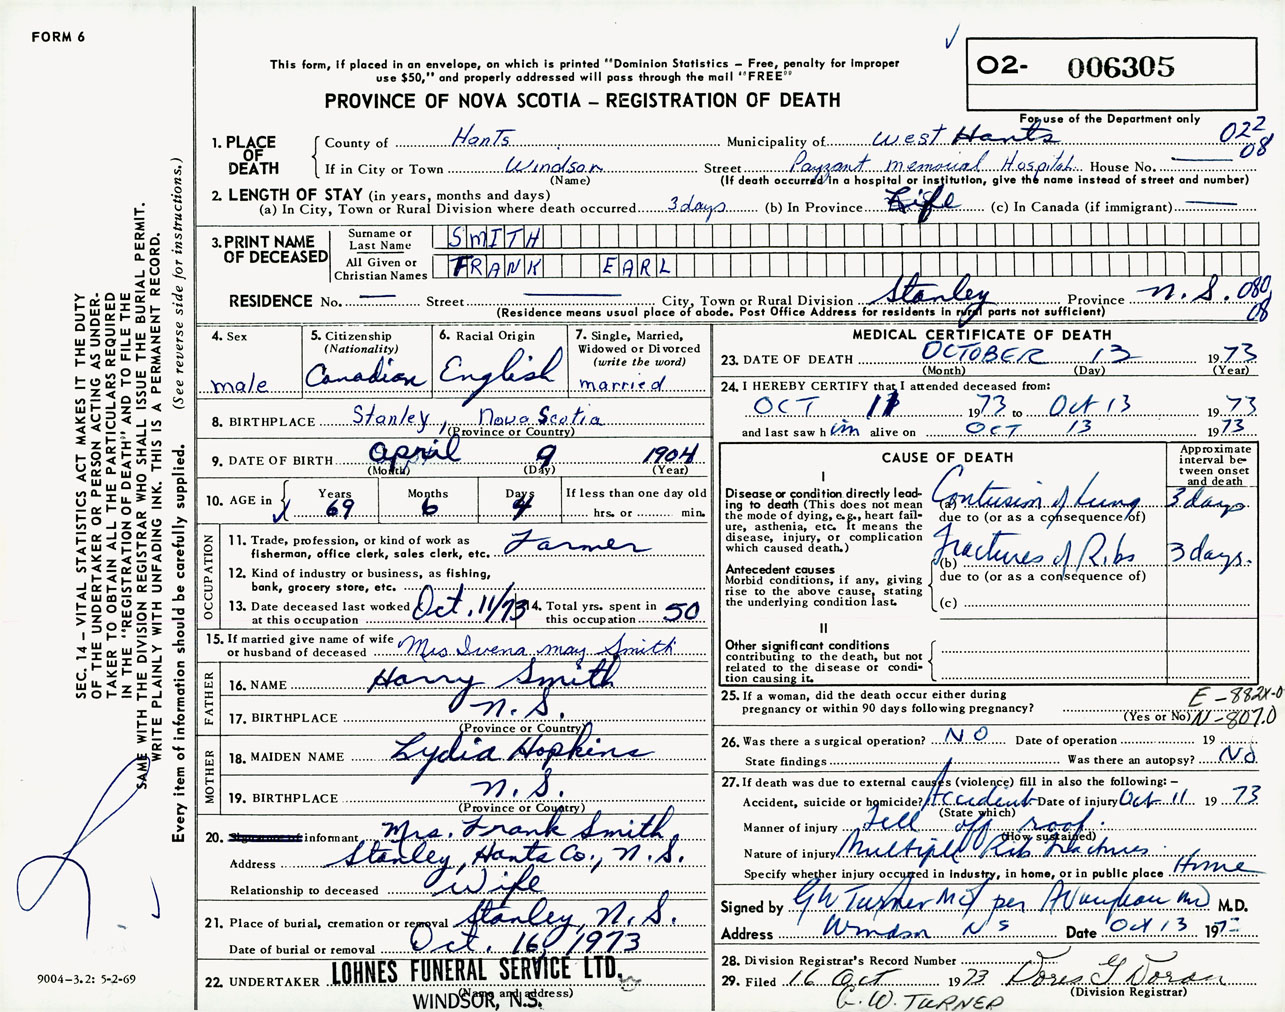 FORM 6
This form, if placed in an envelope, on which is printed "Dominion Statistics – Free, penalty for improper
use $50," and properly addressed will pass through the mail "FREE"
PROVINCE OF NOVA SCOTIA – REGISTRATION OF DEATH
02- 006305
For use of the Department only
022
08
1. PLACE OF DEATH
County of Hants Municipality of West Hants
If in City or Town Windsor Street Payzant Memorial Hospital House No. —
(Name) (If death occurred in a hospital or institution, give the name instead of street and number)
2. LENGTH OF STAY (in years, months and days)
(a) In City, Town or Rural Division where death occurred 3 days (b) In Province Life (c) In Canada (if immigrant) —
3. PRINT NAME OF DECEASED
Surname or Last Name SMITH
All Given or Christian Names FRANK EARL
RESIDENCE No. — Street — City, Town or Rural Division Stanley Province N.S. 080
08
(Residence means usual place of abode. Post Office Address for residents in rural parts not sufficient)
4. Sex male
5. Citizenship (Nationality) Canadian
6. Racial Origin English
7. Single, Married, Widowed or Divorced (write the word) married
8. BIRTHPLACE Stanley, Nova Scotia
(Province or Country)
9. DATE OF BIRTH April 9 1904
(Month) (Day) (Year)
10. AGE in Years 69 Months 6 Days 4 If less than one day old hrs. or min.
OCCUPATION
11. Trade, profession, or kind of work as fisherman, office clerk, sales clerk, etc. Farmer
12. Kind of industry or business, as fishing, bank, grocery store, etc.
13. Date deceased last worked at this occupation Oct. 11/73
14. Total yrs. spent in this occupation 50
15. If married give name of wife or husband of deceased Mrs Ivena may Smith
FATHER
16. NAME Harry Smith
17. BIRTHPLACE N.S.
(Province or Country)
MOTHER
18. MAIDEN NAME Lydia Hopkins
19. BIRTHPLACE N.S.
(Province or Country)
20. informant Mrs. Frank Smith
Address Stanley, Hants Co., N.S.
Relationship to deceased Wife
21. Place of burial, cremation or removal Stanley, N.S.
Date of burial or removal Oct. 16, 1973
22. UNDERTAKER LOHNES FUNERAL SERVICE LTD.
(Name and address)
WINDSOR, N.S.
MEDICAL CERTIFICATE OF DEATH
23. DATE OF DEATH OCTOBER 13 1973
(Month) (Day) (Year)
24. I HEREBY CERTIFY that I attended deceased from:
OCT 11 1973 to Oct 13 1973
and last saw him alive on OCT 13 1973
CAUSE OF DEATH
Approximate interval between onset and death
I
Disease or condition directly leading to death (This does not mean the mode of dying, e.g., heart failure, asthenia, etc. It means the disease, injury, or complication which caused death.)
(a) Contusion of Lung 3 days
due to (or as a consequence of)
(b) Fractures of Ribs 3 days.
due to (or as a consequence of)
Antecedent causes
Morbid conditions, if any, giving rise to the above cause, stating the underlying condition last.
(c)
II
Other significant conditions
contributing to the death, but not related to the disease or condition causing it.
25. If a woman, did the death occur either during pregnancy or within 90 days following pregnancy?
(Yes or No)
N-807.0
26. Was there a surgical operation? NO Date of operation 19
State findings Was there an autopsy? No
27. If death was due to external causes (violence) fill in also the following:–
Accident, suicide or homicide? Accident Date of injury Oct 11 1973
(State which)
Manner of injury Fell off roof.
(How sustained)
Nature of injury Multiple Rib Fractures
Specify whether injury occurred in industry, in home, or in public place Home
Signed by GW Turner per A Vaughan MD M.D.
Address Windsor NS Date Oct 13 197
28. Division Registrar's Record Number
29. Filed 16 Oct 1973 Doris G Doran
(Division Registrar)
G.W. TURNER
SEC. 14 – VITAL STATISTICS ACT MAKES IT THE DUTY
OF THE UNDERTAKER OR PERSON ACTING AS UNDER-
TAKER TO OBTAIN ALL THE PARTICULARS REQUIRED
IN THE "REGISTRATION OF DEATH" AND TO FILE THE
SAME WITH THE DIVISION REGISTRAR WHO SHALL ISSUE THE BURIAL PERMIT.
WRITE PLAINLY WITH UNFADING INK. THIS IS A PERMANENT RECORD.
Every item of information should be carefully supplied. (See reverse side for instructions.)
9004-3.2: 5-2-69